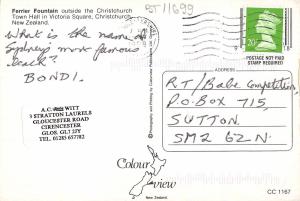 BT/1699
Ferrier Fountain outside the Christchurch
Town Hall in Victoria Square, Christchurch,
New Zealand.
What is the name of
Sydney's most famous
beach?
BONDI.
A.C. WITT
3 STRATTON LAURELS
GLOUCESTER ROAD
CIRENCESTER
GLOS. GL7 2LY
TEL 01285 657782
20p
POSTAGE NOT PAID
STAMP REQUIRED
ADDRESS
RT/Babe Competition
P.O. BOX 715,
SUTTON.
SM2 6ZN.
Colour
view
New Zealand.
CC 1167